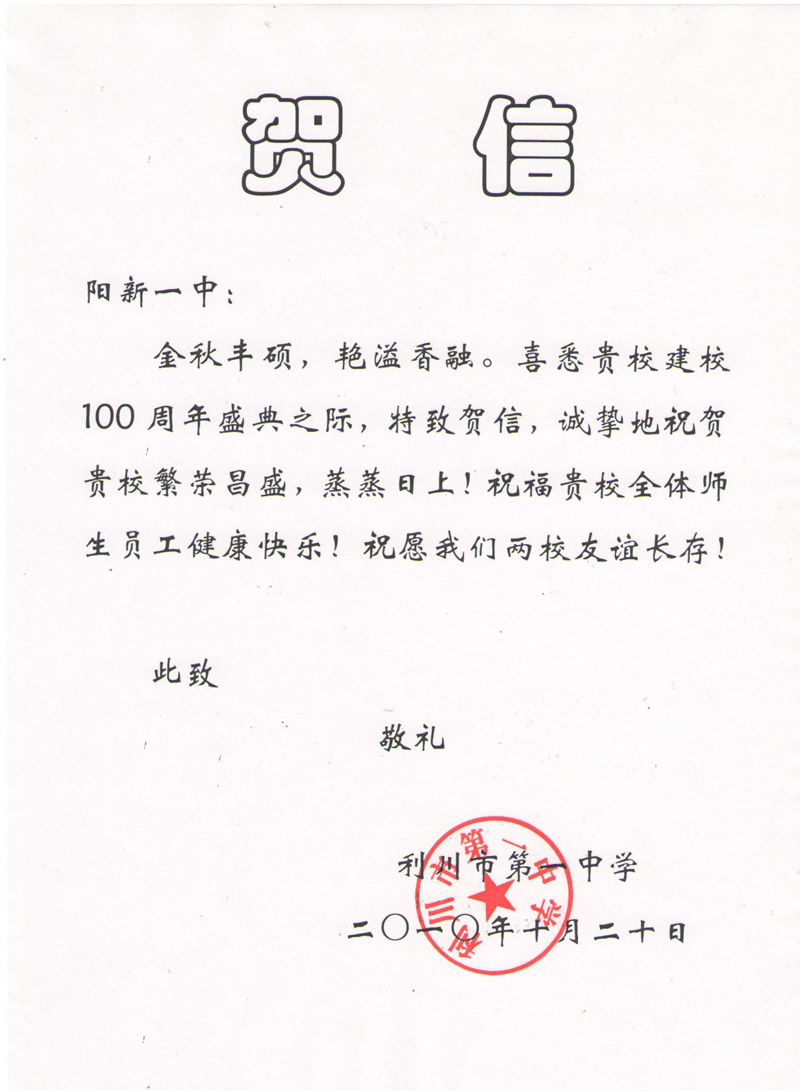 贺 信
阳新一中：
金秋丰硕，艳溢香融。喜悉贵校建校
100周年盛典之际，特致贺信，诚挚地祝贺
贵校繁荣昌盛，蒸蒸日上！祝福贵校全体师
生员工健康快乐！祝愿我们两校友谊长存！
此致
敬礼
利川市第一中学
利川市第一中学
二〇一〇年十月二十日